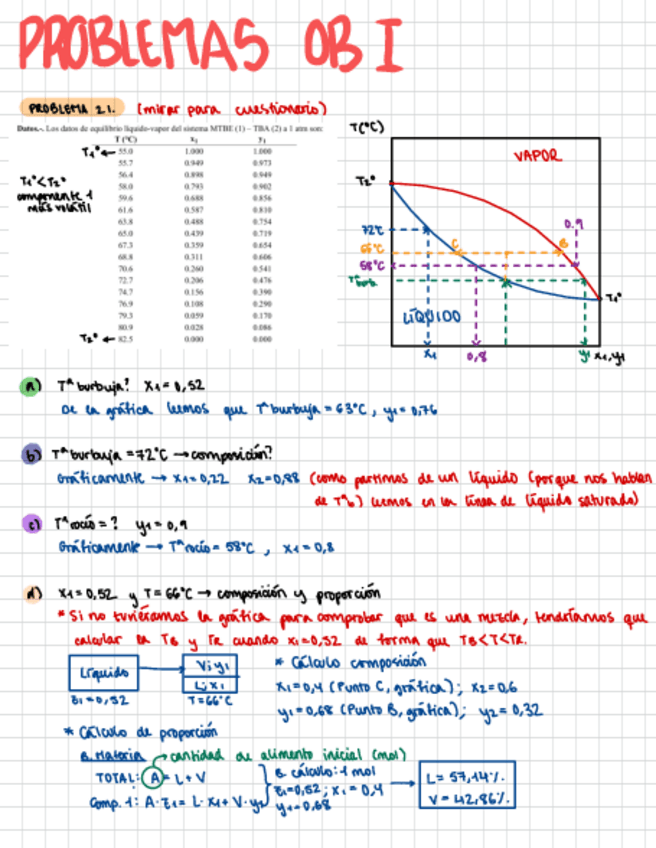 PROBLEMAS OB I
PROBLEMA 2.1. (mirar para cuestionario)
Datos.-. Los datos de equilibrio líquido-vapor del sistema MTBE (1) – TBA (2) a 1 atm son:
T (°C) x₁ y₁
T₁° ← 55.0 1.000 1.000
55.7 0.949 0.973
56.4 0.898 0.949
58.0 0.793 0.902
59.6 0.688 0.856
61.6 0.587 0.810
63.8 0.488 0.754
65.0 0.439 0.719
67.3 0.359 0.654
68.8 0.311 0.606
70.6 0.260 0.541
72.7 0.206 0.476
74.7 0.156 0.390
76.9 0.108 0.290
79.3 0.059 0.170
80.9 0.028 0.086
T₂° ← 82.5 0.000 0.000
T₁° < T₂°
componente 1
más volátil
T(°C)
VAPOR
T₂°
0.9
72°C
66°C C B
58°C
Tªburb.
T₁°
LÍQUIDO
x₁ 0,8 y₁ x₁,y₁
a) Tª burbuja? x₁ = 0,52
De la gráfica leemos que Tª burbuja = 63°C, y₁ = 0,76
b) Tª burbuja = 72°C → composición?
Gráficamente → x₁ = 0,22 x₂ = 0,88 (como partimos de un líquido (porque nos hablan
de Tªb) leemos en la línea de líquido saturado)
c) Tª rocío = ? y₁ = 0,9
Gráficamente → Tª rocío = 58°C, x₁ = 0,8
d) x₁ = 0,52 y T = 66°C → composición y proporción
* Si no tuviéramos la gráfica para comprobar que es una mezcla, tendríamos que
calcular la TB y TR cuando x₁ = 0,52 de forma que TB < T < TR.
Líquido → V; y₁
L; x₁
z₁ = 0,52 T = 66°C
* Cálculo composición
x₁ = 0,4 (Punto C, gráfica); x₂ = 0,6
y₁ = 0,68 (Punto B, gráfica); y₂ = 0,32
* Cálculo de proporción
B. Materia → cantidad de alimento inicial (mol)
TOTAL: A = L + V
Comp. 1: A · z₁ = L · x₁ + V · y₁
B. cálculo: 1 mol
z₁ = 0,52; x₁ = 0,4
y₁ = 0,68
→ L = 57,14%
V = 42,86%